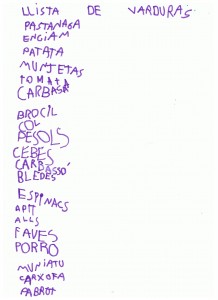 LLISTA DE VARDURAS
PASTANAGA
ENCIAM
PATATA
MUNJETAS
TOMATA
CARBASA
BROCIL
COL
PESOLS
CEBES
CARBASSÓ
BLEDES
ESPINACS
APIT
ALLS
FAVES
PORRO
MUNIATU
CARXOFA
PABROT